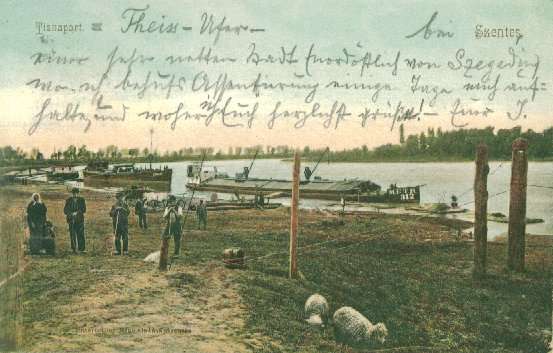 Tiszapart. Theiss-Ufer- bei Szentes
einer sehr netten Stadt (nordöstlich von Szegedin)
wo ich behufs Assentierung einige Tage mich auf-
halte, und woher ich Euch herzlichst grüße! - Euer J.
312